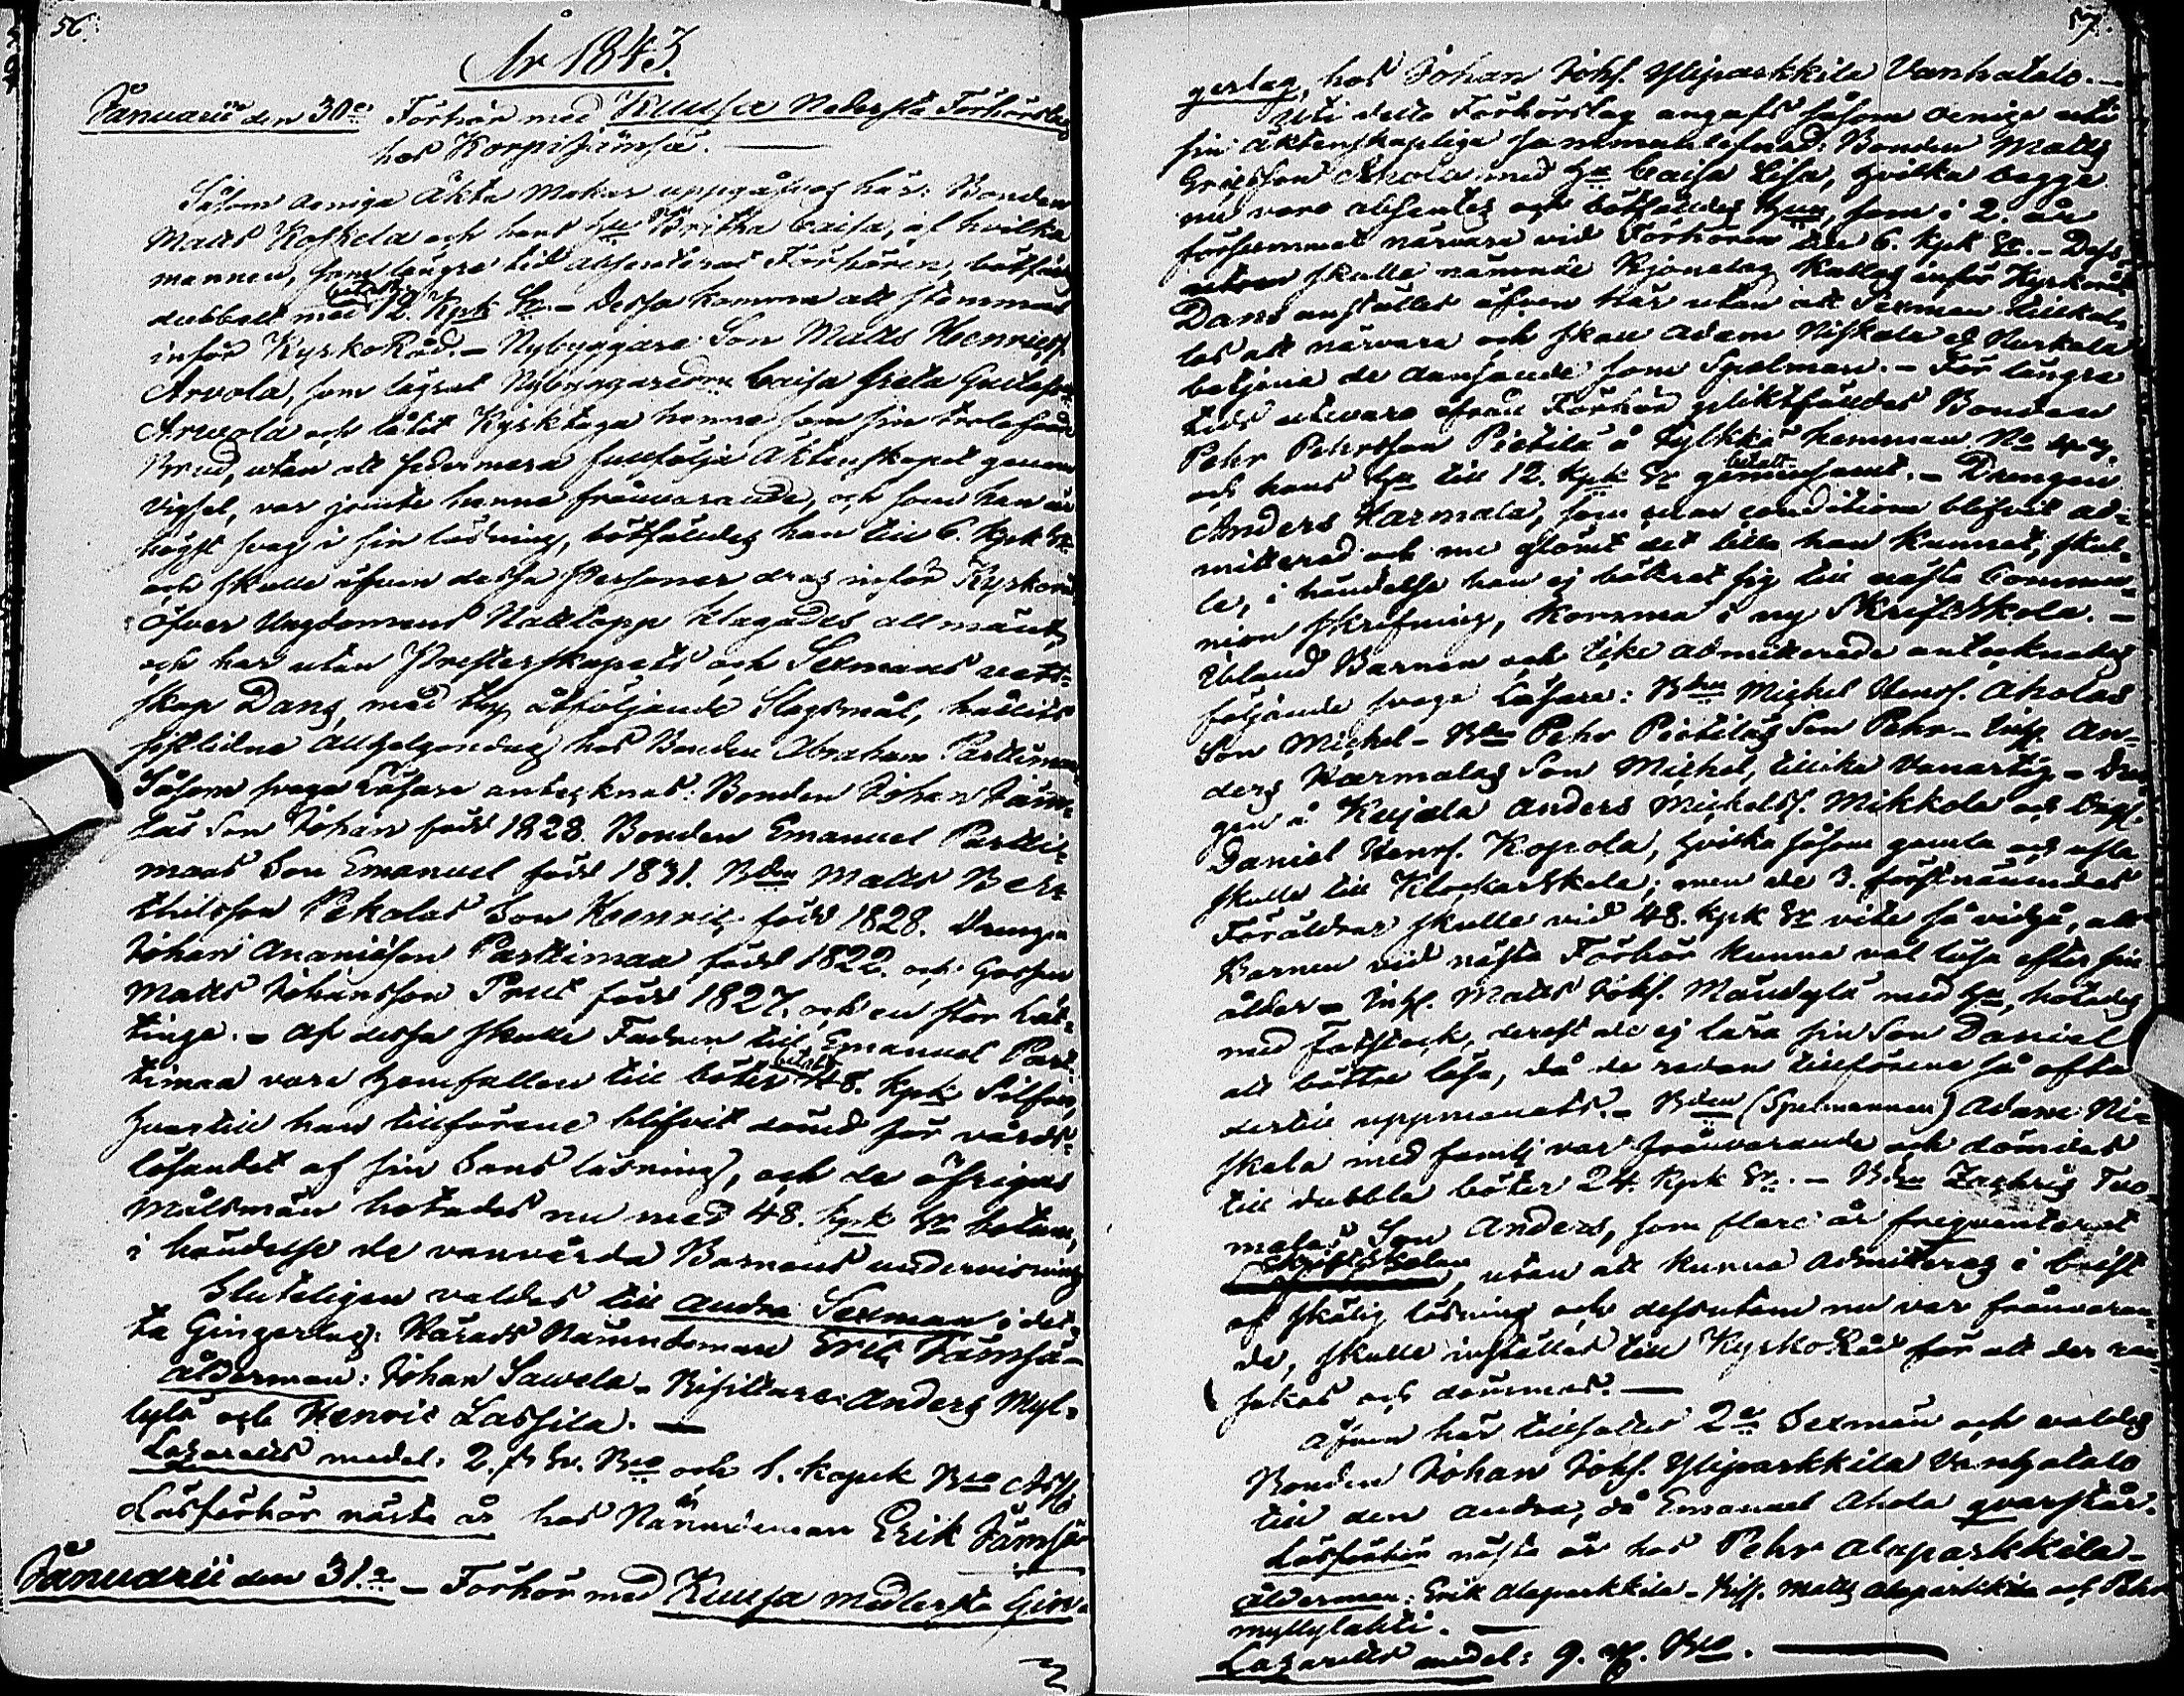 56.
År 1843.
Januarii den 30:e Förhör med Kuusa Nedersta Förhörslag
hos Korpijämsä.
Såsom oeniga Äkta Makar uppgåfvos här: Bonden
Matts Koskela och hans Hu Britha Caisa, af hvilka
mannen, som längre tid absenterat Förhören, bötfäldes
betalt
dubbelt med 12. Kpk Sr. - Dessa komma att stämmas
inför KyrkoRåd. - Nybyggare Son Matts Henricss.
Arvola, som lägrat Nybyggaredotr Caisa Greta Gustafsdr
Arvola och låtit Kyrktaga henne som sin trolofvade
Brud, utan att sedermera fullfölja Äktenskapet genom
Vigsel, var jemte henne frånvarande, och som han är
högst svag i sin läsning, bötfäldes han till 6. Kpk Sr
och skulle äfven dessa Personer dras inför Kyrkoråd
Öfver Ungdomens Nattlopp klagades allmänt,
och har utan Presterskapets och Sexmans vett-
skap Dans, med thy åtföljande Slagsmål, hållits
sistlidne Allhelgondag hos Bonden Abraham Parttimaa
Såsom svaga Läsare antecknas: Bonden Johan Jäm-
säs Son Johan född 1828. Bonden Emanuel Partti-
maas Son Emanuel född 1831. Bden Matts Ber-
thilsson Pekolas Son Henric född 1828. Drengen
Johan Ananiæson Parttimaa född 1822. och Gossen
Matts Johansson Prut född 1827. och en stor hät-
tinge. - Af dessa skulle Fadren till Emanuel Part-
betalt
timaa vara hemfallen till böter 48. Kpk Silfver,
hvartill han tillförene blifvit dömd för vårds-
lösandet af sin Sons läsning, och de öfrigas
Målsmän hotades nu med 48. Kpk Sr böter,
i händelse de vanvårda Barnens undervisning
Sluteligen valdes till andra Sexman i det-
ta Gingerlag: Härads Nämndeman Eric Jämsä -
Ålderman: Johan Sawela - Bisittare: Anders Myl-
lylä och Henric Lassila. -
Lazaretts medel: 2. Sr. Bco och 1. kopek Bco Ass.
Läsförhör nästa år hos Nämndeman Erik Jämsä
Januarii den 31:a - Förhör med Kuusa medlersta Gin-
57.
gerlag, hos Johan Johss. Yliparkkila Vanhatalo. -
Uti detta Förhörslag angafs såsom oenige uti
sin äktenskapliga sammanlefnad: Bonden Matts
Ericsson Ahola med Hu Caisa Lisa, hvilka begge
nu voro absentes och bötfäldes Hun, som i 2. år
försummat närvara vid Förhören till 6. Kpk Sr. - Dess-
utom skulle nämnde Hjonelag kallas inför Kyrkoråd
Dans anställes äfven här utan att Sexman tillkal-
las att närvara och skall Adam Niskala af Kerkala
betjena de dansande som Spelman. - För längre
tids utevaro ifrån Förhör pliktfäldes Bonden
Pehr Pehrsson Pietilä å Sylkkä hemman No
betalt
och hans Hu till 12. Kpk Sr gemensamt. - Drengen
Anders Harmala, som under conditione blifvit ad-
mitterad och nu glömt det lilla han kunnat, skul-
le, i händelse han ej bättrat sig till nästa Commu-
nion skrifning, komma i ny Skriftskola. -
Ibland Barnen och like admitterade antecknades
följande svaga Läsare: Bden Michel Henrs. Aholas
Son Michel - Bden Pehr Pietiläs Son Pehr - Inhs. An-
ders Harmalas Son Michel, tillika Vanartig - Dren-
gen å Kujala Anders Michelss. Mikkola och Drgn.
Daniel Henrs. Kopola, hvilka såsom gamla och usla
skulle till Klockarskola; men de 3. förstnämndas
Föräldrar skulle vid 48. Kpk Sr vite så vidgå, att
Barnen vid nästa Förhör kunna väl läsa efter sin
ålder - Inhs. Matts Johss. Mändylä med Hu, hotades
med Fotstock, derest de ej lära sin Son Daniel
att bättre läsa, då de redan tillförene så ofta
dertill uppmanats. - Bden (Spelmannen) Adam Ni-
skala med familj var frånvarande och dömdes
till dubbla böter 24. Kpk Sr. - Bden Zachris Tuo-
malas Son Anders, som flere år frequenterat
Skriftskolan, utan att kunna admitteras i brist
af skälig läsning och dessutom nu var frånvaran-
de, skulle inställas till KyrkoRåd för att der ran-
sakas och dömmas. -
Äfven här tillsattes 2:a Sexmän och valdes
Bonden Johan Johss. Yliparkkila Vanhatalo
till den andra, då Emanuel Ahola qvarstår.
Läsförhör nästa år hos Pehr Alaparkkila -
Ålderman: Erik Alaparkkila - Biss. Matts Alaparkkila och Pehr
Myllylahti. -
Lazaretts medel: 9. Bco. -